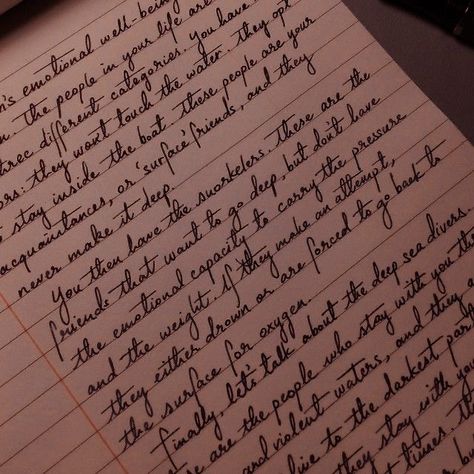 n's emotional well-being
n. The people in your life are
three different categories. You have
ors: they won't touch the water. they opt
stay inside the boat. These people are your
acquaintances, or 'surface' friends, and they
never make it deep.
You then have the snorkelers. These are the
friends that want to go deep, but don't have
the emotional capacity to carry the pressure
and the weight. If they make an attempt,
they either drown or are forced to go back to
the surface for oxygen.
Finally, let's talk about the deep sea divers.
se are the people who stay with you th
and violent waters, and they a
dive to the darkest part
they stay with you
times.